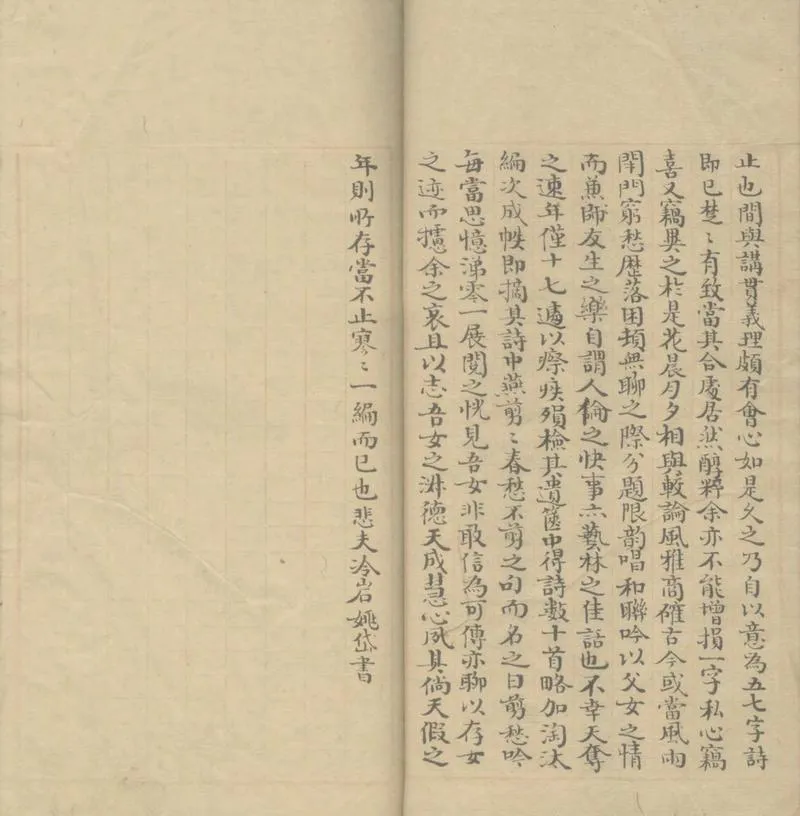 止也間與講貫義理頗有會心如是久之乃自以意為五七字詩
即已楚〻有致當其合處居然醇粹余亦不能增損一字私心竊
喜又竊異之於是花晨月夕相與較論風雅商確古今或當風雨
閉門窮愁歷落困頓無聊之際分題限韵唱和聯吟以父女之情
而兼師友生之樂自謂人倫之快事亦藝林之佳話也不幸天奪
之速年僅十七遽以瘵疾殞檢其遺篋中得詩數十首略加淘汰
編次成帙即摘其詩中燕剪〻春愁不剪之句而名之曰剪愁吟
每當思憶涕零一展閱之恍見吾女非敢信為可傳亦聊以存女
之迹而攄余之哀且以志吾女之淋德天成慧心夙具倘天假之
年則所存當不止寥〻一編而已也悲夫冷岩姚岱書